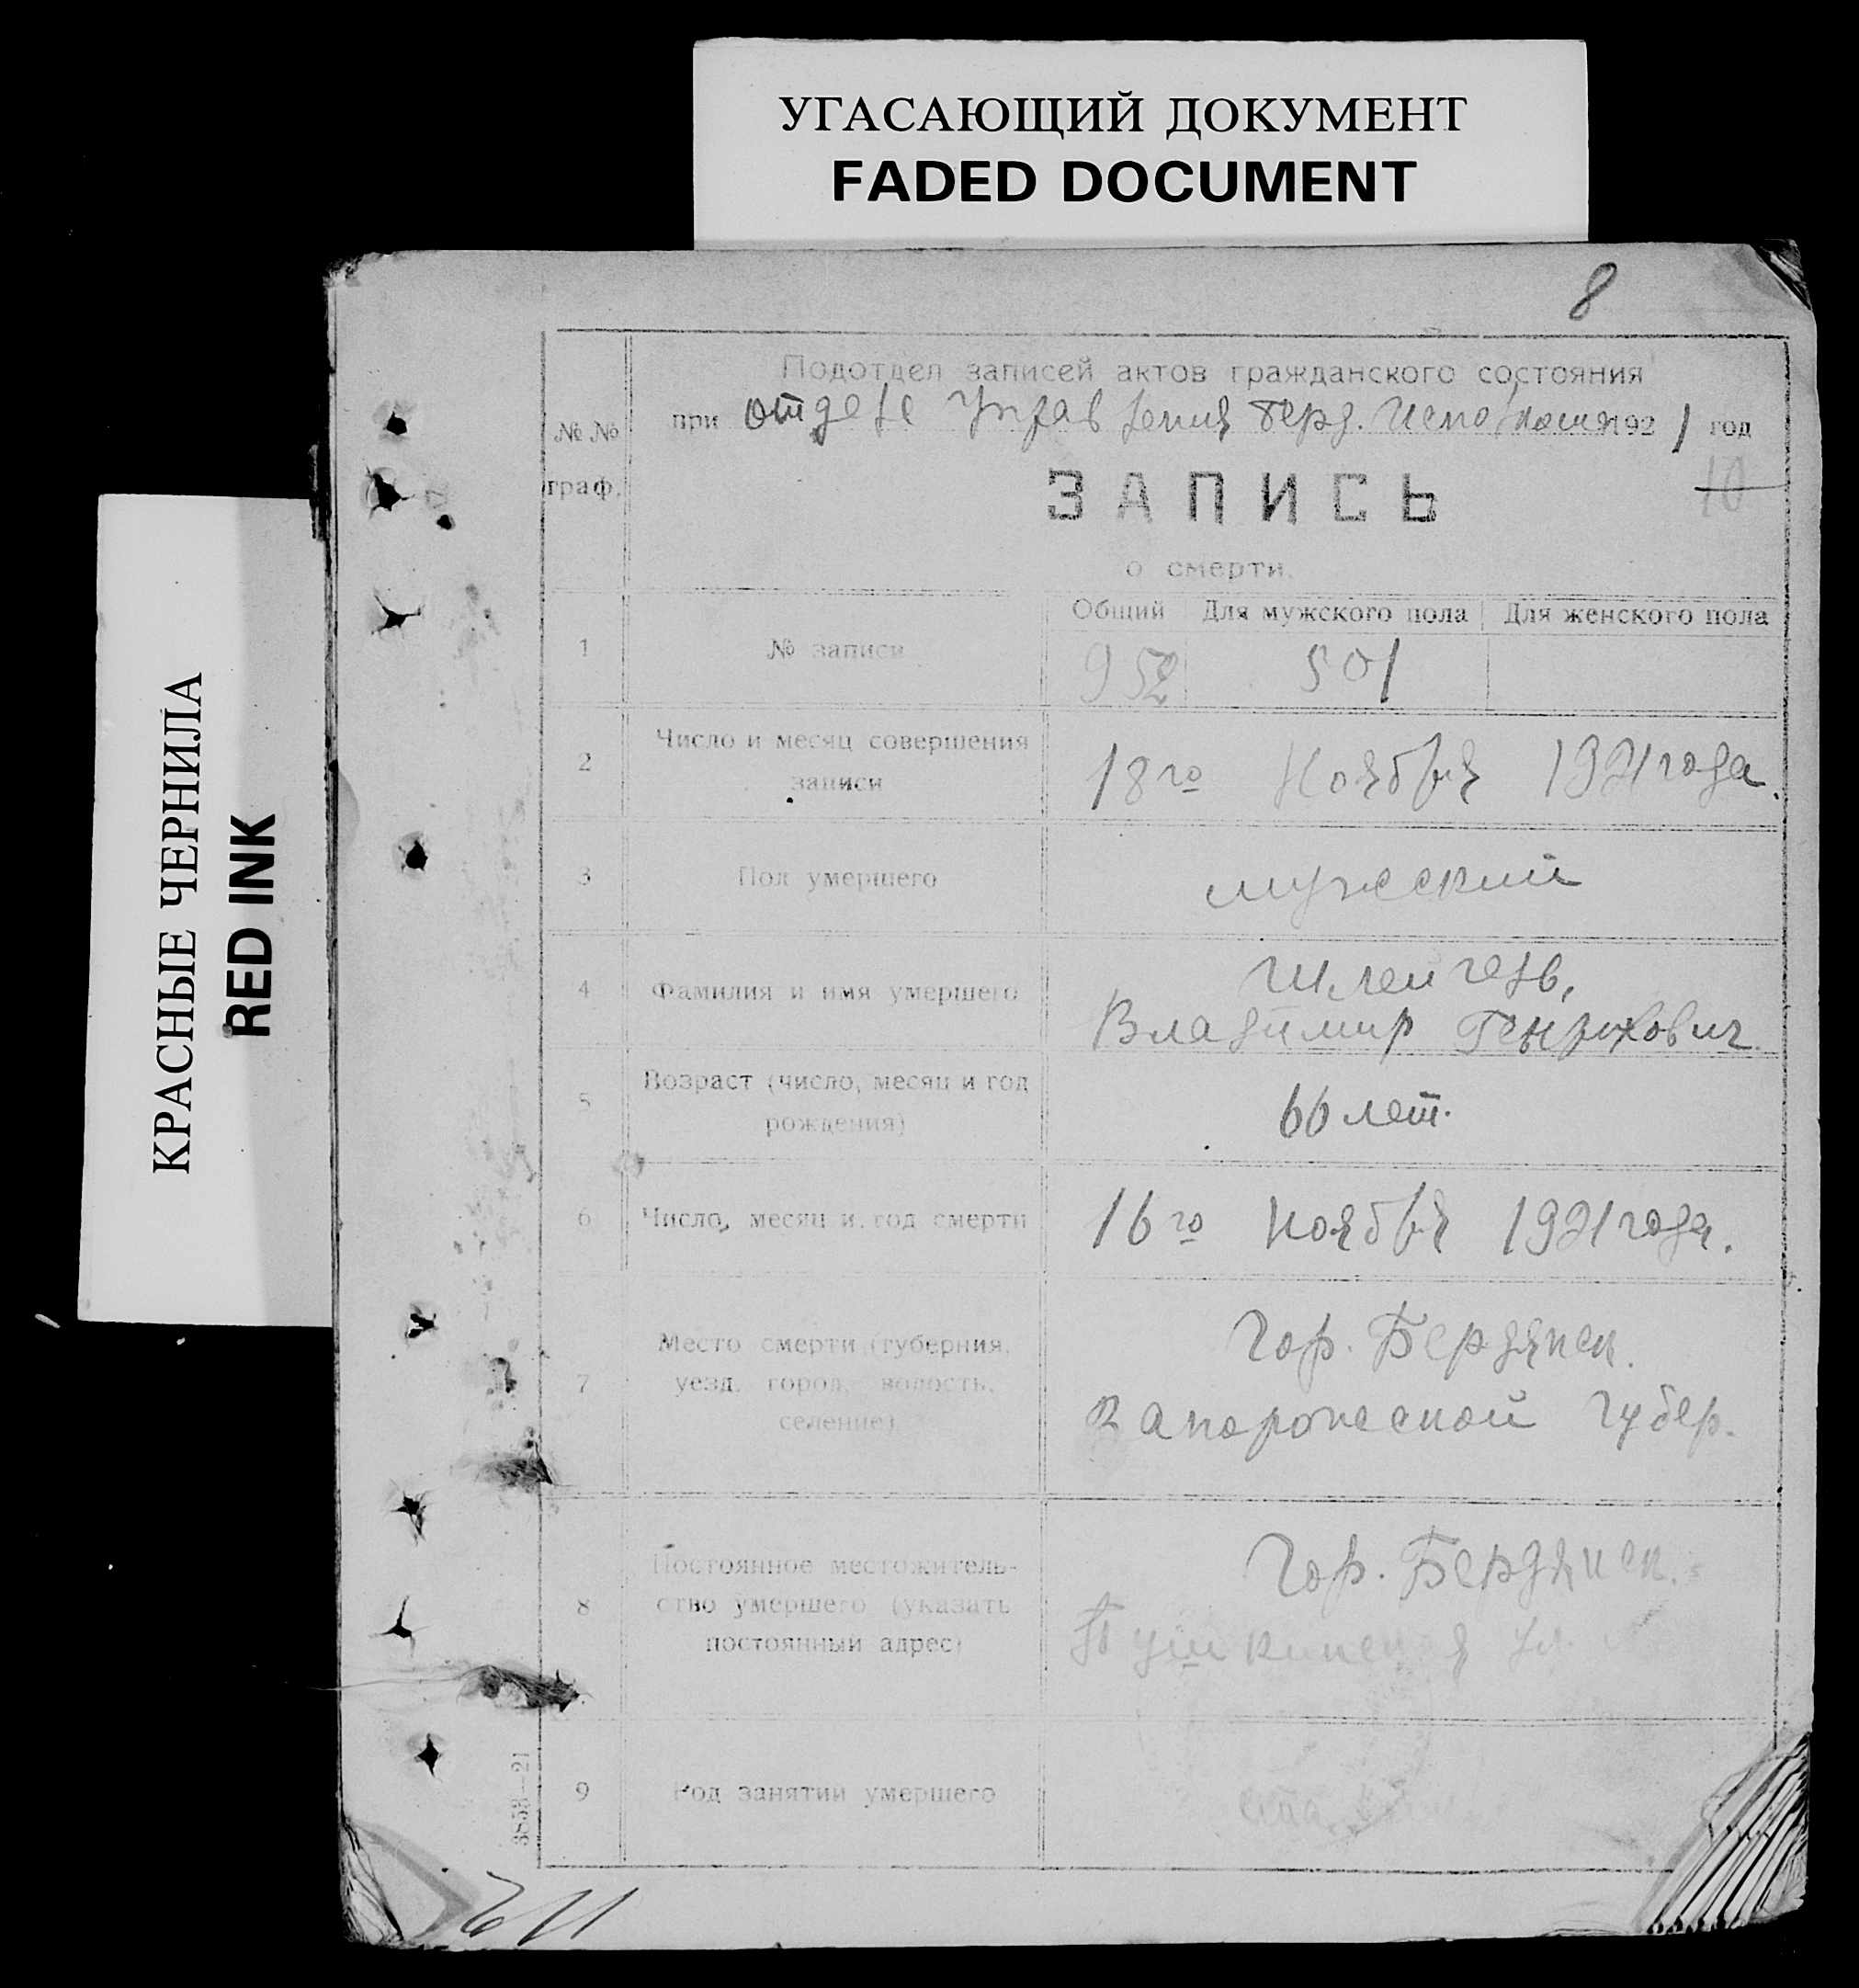 УГАСАЮЩИЙ ДОКУМЕНТ
FADED DOCUMENT
КРАСНЫЕ ЧЕРНИЛА
RED INK
8
Подотдел записей актов гражданского состояния
№№ граф.
при отделе Управления Берд. Исполкома 1921 год
ЗАПИСЬ
10
о смерти.
Общий Для мужского пола Для женского пола
1 № записи 952 501
2 Число и месяц совершения
записи
18го Ноября 1921 года.
3 Пол умершего мужский
4 Фамилия и имя умершего
Шлейгель,
Владимир Генрихович.
5 Возраст (число, месяц и год
рождения)
66 лет.
6 Число, месяц и год смерти 16го Ноября 1921 года.
7 Место смерти (губерния,
уезд, город, волость,
селение)
Гор. Бердянск.
Запорожской губер.
8 Постоянное местожитель-
ство умершего (указать
постоянный адрес)
Гор. Бердянск.
Пушкинская ул.
9 Род занятий умершего
3858—21